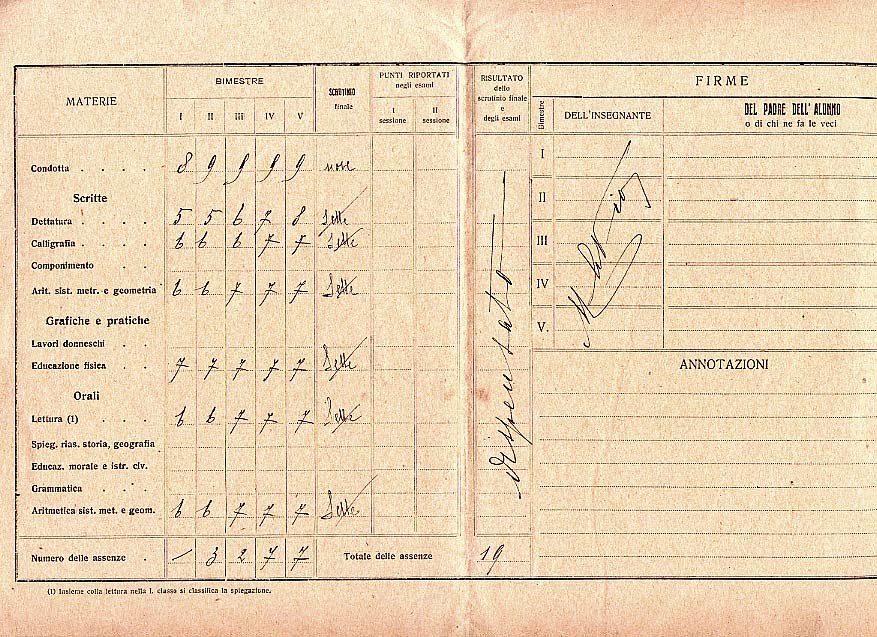 MATERIE
BIMESTRE
I II III IV V
SCRUTINIO
finale
PUNTI RIPORTATI
negli esami
I
sessione
II
sessione
RISULTATO
dello
scrutinio finale
e
degli esami
Bimestre
FIRME
DELL'INSEGNANTE
DEL PADRE DELL'ALUNNO
o di chi ne fa le veci
Condotta . . . . 8 9 9 9 9 nove
Scritte
Dettatura . . . . 5 5 6 7 8 Sette
Calligrafia . . . . 6 6 6 7 7 Sette
Componimento . .
Arit. sist. metr. e geometria 6 6 7 7 7 Sette
Grafiche e pratiche
Lavori donneschi . .
Educazione fisica . . 7 7 7 7 7 Sette
Orali
Lettura (1) . . . 6 6 7 7 7 Sette
Spieg. rias. storia, geografia
Educaz. morale e istr. civ.
Grammatica . . .
Aritmetica sist. met. e geom. 6 6 7 7 7 Sette
Numero delle assenze . / 3 2 7 7
Totale delle assenze 19
dispensato
I
II
III
IV
V.
ANNOTAZIONI
(1) Insieme colla lettura nella I. classe si classifica la spiegazione.